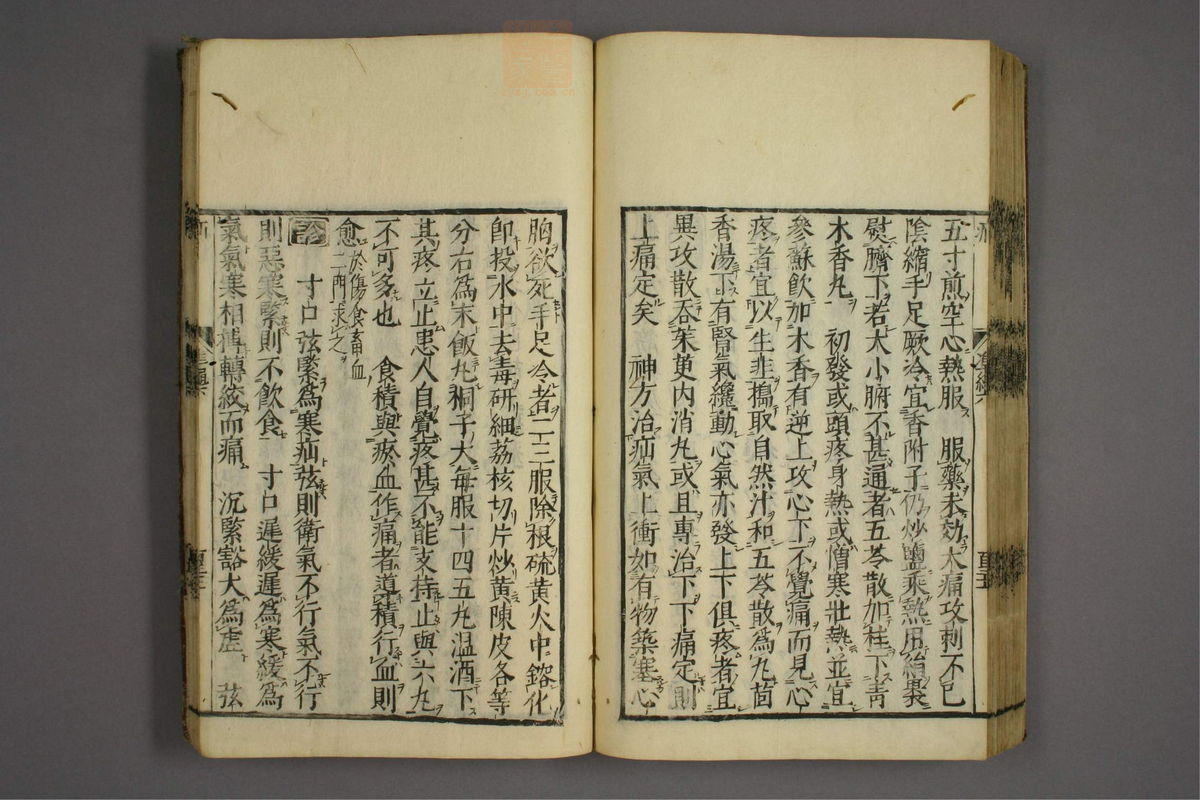 五寸煎空心熱服　服藥未効大痛攻刺不已
陰縮手足厥冷宜香附子仍炒鹽乘熱用絹裹
熨臍下若大小腑不甚通者五苓散加桂下青
木香丸　初發或頭疼身熱或憎寒壯熱並宜
參蘇飲加木香有逆上攻心下不覺痛而見心
疼者宜以生韭搗取自然汁和五苓散爲丸茴
香湯下有腎氣纔動心氣亦發上下俱疼者宜
異攻散吞茱萸內消丸或且專治下下痛定則
上痛定矣　神方治疝氣上衝如有物築塞心
胸欲死手足冷者二三服除根硫黃火中鎔化
卽投水中去毒研細荔核切片炒黃陳皮各等
分右爲末飯丸桐子大每服十四五丸溫酒下
其疼立止患人自覺疼甚不能支持止與六丸
不可多也　食積與瘀血作痛者導積行血則
愈於傷食畜血二門求之
診　寸口弦緊爲寒疝弦則衛氣不行氣不行
則惡寒緊則不飲食　寸口遲緩遲爲寒緩爲
氣氣寒相搏轉絞而痛　沉緊豁大爲虛　弦